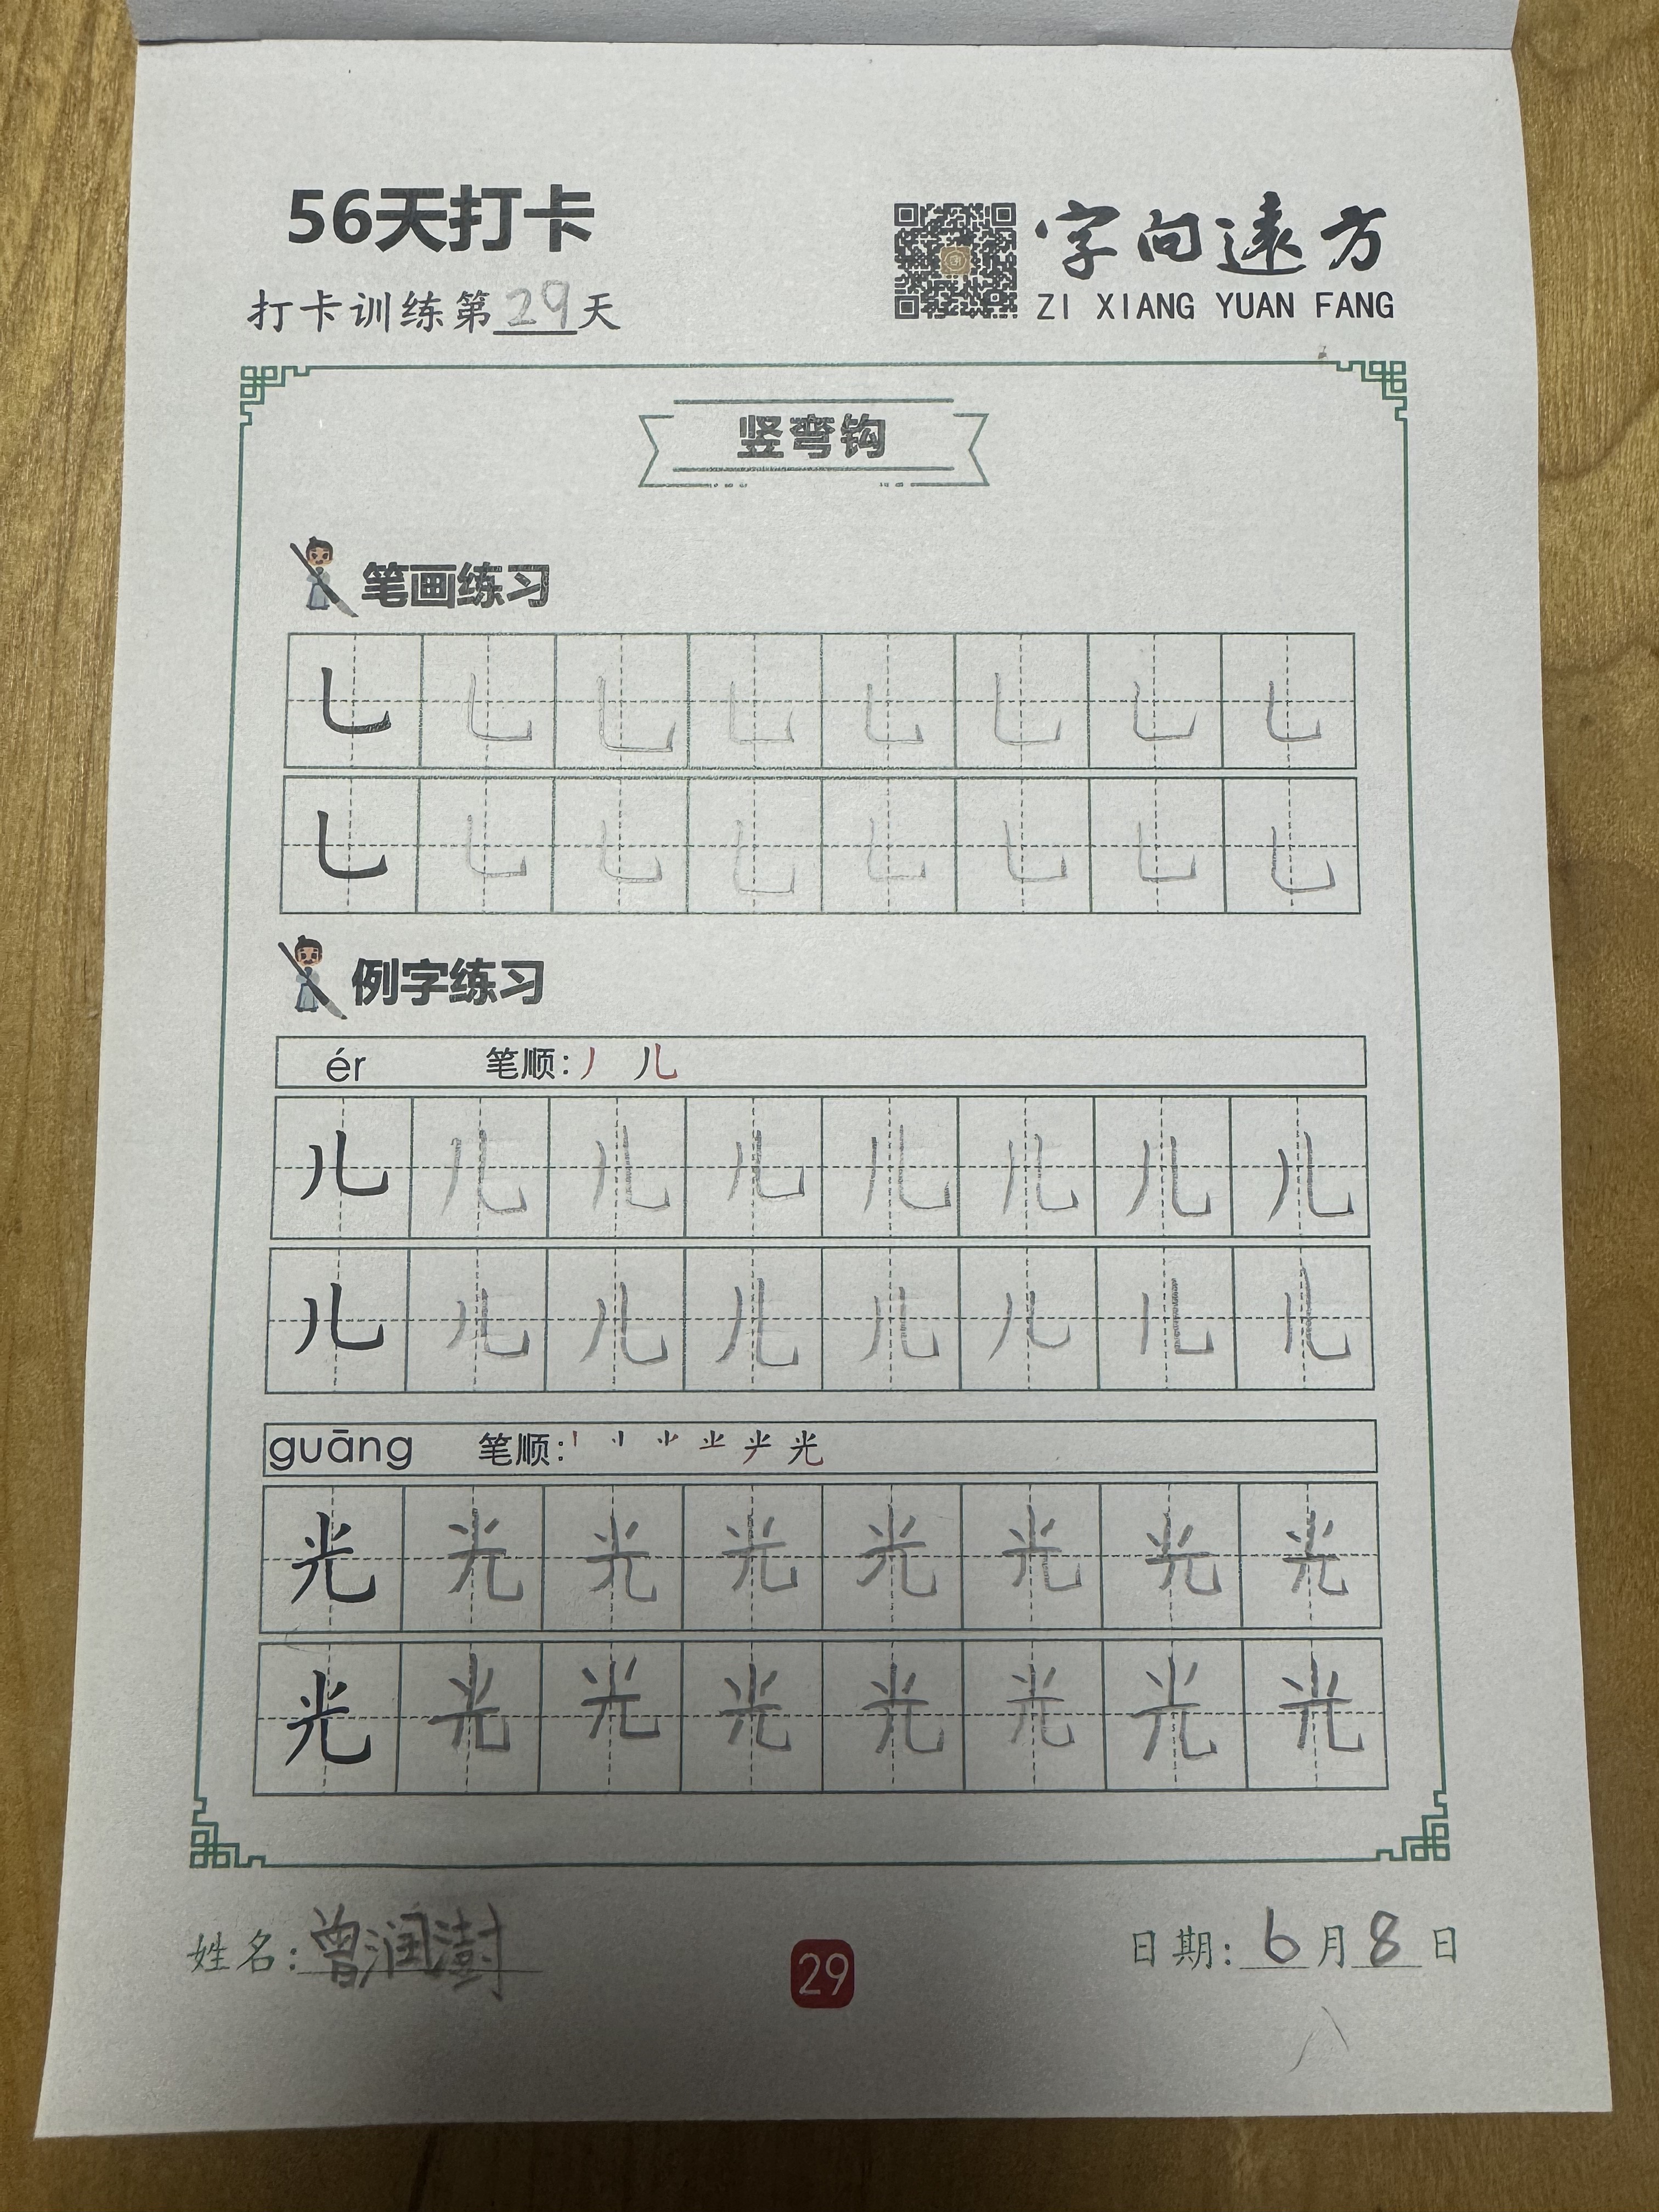 56天打卡
字向遠方
打卡训练第29天
ZI XIANG YUAN FANG
竖弯钩
笔画练习
乚 乚 乚 乚 乚 乚 乚 乚
乚 乚 乚 乚 乚 乚 乚 乚
例字练习
ér 笔顺: 丿 儿
儿 儿 儿 儿 儿 儿 儿 儿
儿 儿 儿 儿 儿 儿 儿 儿
guāng 笔顺: 光
光 光 光 光 光 光 光 光
光 光 光 光 光 光 光 光
姓名: 曾润澍
29
日期: 6月8日